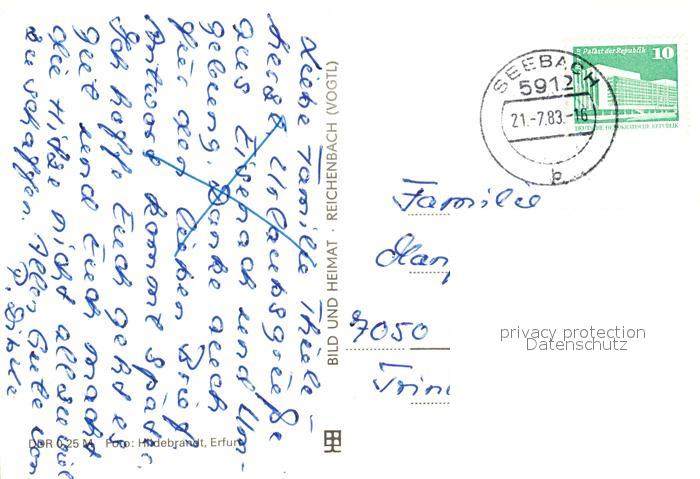 Liebe Familie Thiele -
herzl. Urlaubsgrüße
aus Eisenach und Um-
gebung. Danke auch
für den lieben Brief
Antwort kommt später.
Ich hoffe Euch geht es
gut und Euch macht
die Hitze nicht allzuviel
zu schaffen. Alles Gute von
BILD UND HEIMAT · REICHENBACH (VOGTL)
DDR 0,25 M Foto: Hildebrandt, Erfurt
Palast der Republik 10
DEUTSCHE DEMOKRATISCHE REPUBLIK
SEEBACH
5912
21.-7.83.-16
b
Familie
7050
privacy protection
Datenschutz